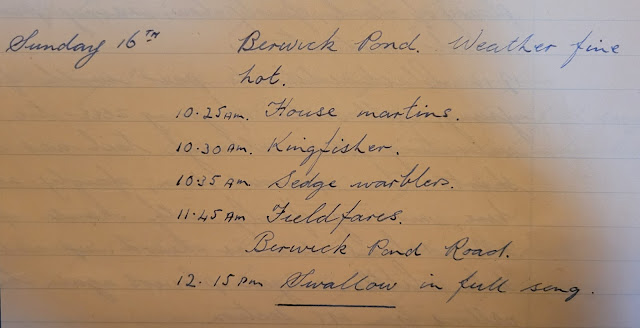 Sunday 16TH Berwick Pond. Weather fine
hot.
10.25AM. House martins.
10.30AM. Kingfisher.
10.35AM Sedge warblers.
11.45AM Fieldfares.
Berwick Pond Road.
12.15PM Swallow in full song.